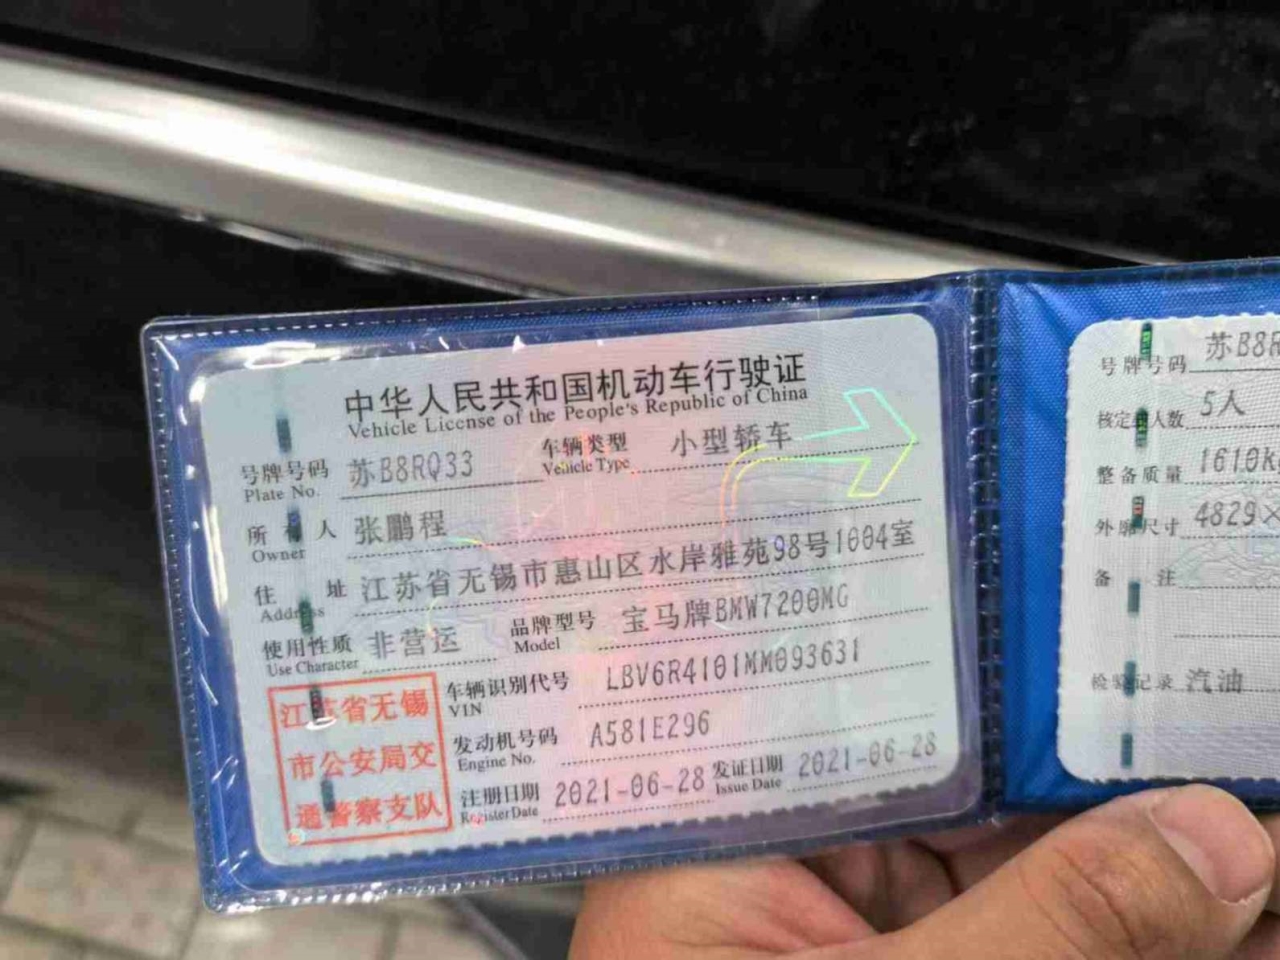 中华人民共和国机动车行驶证
Vehicle License of the People's Republic of China
号牌号码 苏B8RQ33 车辆类型 小型轿车
Plate No. Vehicle Type
所有人 张鹏程
Owner
住址 江苏省无锡市惠山区水岸雅苑98号1004室
Address
使用性质 非营运 品牌型号 宝马牌BMW7200MG
Use Character Model
车辆识别代号 LBV6R4101MM093631
VIN
发动机号码 A581E296
Engine No.
注册日期 2021-06-28 发证日期 2021-06-28
Register Date Issue Date
江苏省无锡
市公安局交
通警察支队
号牌号码 苏B8R
核定 人数 5人
整备质量 1610k
外廓尺寸 4829×
备注
检验记录 汽油